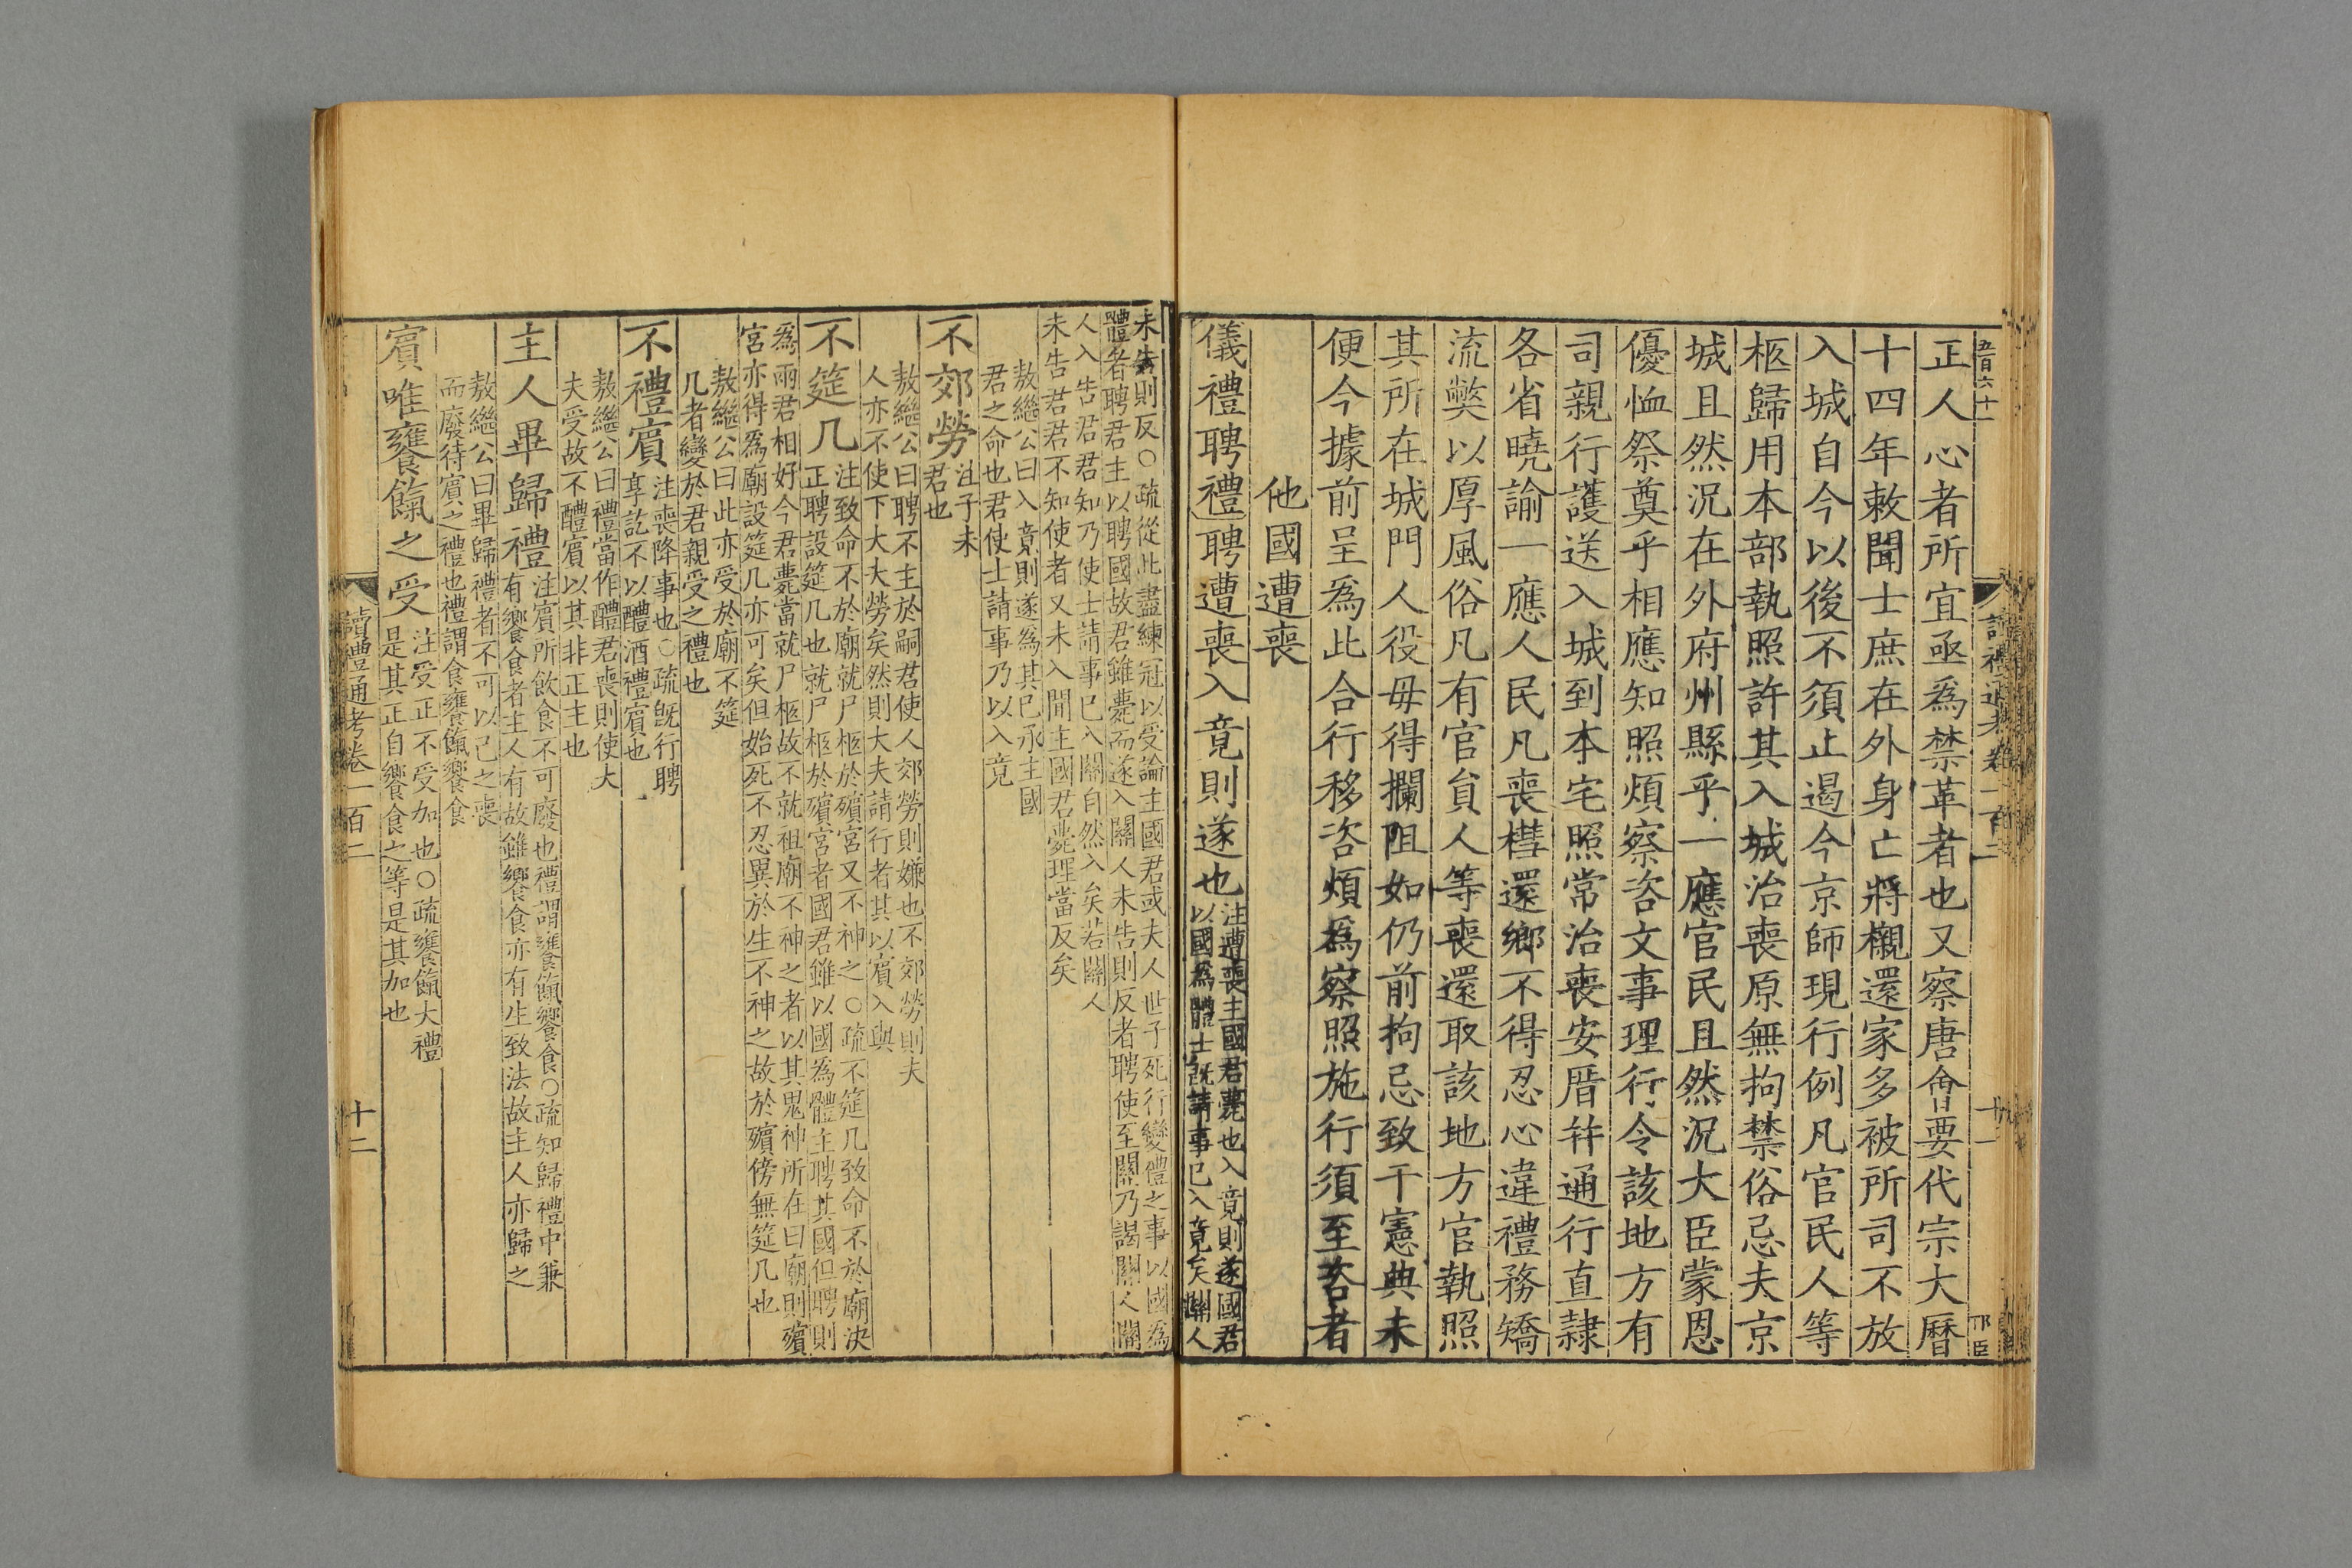 五百六十二
讀禮通考卷一百二
十一
邝臣
正人心者所宜亟爲禁革者也又察唐會要代宗大曆
十四年敕聞士庶在外身亡將櫬還家多被所司不放
入城自今以後不須止遏今京師現行例凡官民人等
柩歸用本部執照許其入城治喪原無拘禁俗忌夫京
城且然況在外府州縣乎一應官民且然況大臣蒙恩
優恤祭奠乎相應知照煩察咨文事理行令該地方有
司親行護送入城到本宅照常治喪安厝幷通行直隷
各省曉諭一應人民凡喪櫘還鄉不得忍心違禮務矯
流獘以厚風俗凡有官貟人等喪還取該地方官執照
其所在城門人役毋得攔阻如仍前拘忌致干憲典未
便今據前呈爲此合行移咨煩爲察照施行須至咨者
他國遭喪
儀禮聘禮聘遭喪入竟則遂也
注遭喪主國君薨也入竟則遂國君
以國爲體士旣請事已入竟矣關人
未告則反○疏從此盡練冠以受論主國君或夫人世子死行變禮之事以國爲
體者聘君主以聘國故君雖薨而遂入關人未告則反者聘使至關乃謁關人關
人入告君君知乃使士請事已入關自然入矣若關人
未告君君不知使者又未入聞主國君薨理當反矣
敖繼公曰入竟則遂爲其已承主國
君之命也君使士請事乃以入竟
不郊勞
注子未
君也
敖繼公曰聘不主於嗣君使人郊勞則嫌也不郊勞則夫
人亦不使下大夫勞矣然則大夫請行者其以賓入與
不筵几
注致命不於廟就尸柩於殯宮又不神之○疏不筵几致命不於廟決
正聘設筵几也就尸柩於殯宮者國君雖以國爲體主聘其國但聘則
爲兩君相好今君薨當就尸柩故不就祖廟不神之者以其鬼神所在曰廟則殯
宮亦得爲廟設筵几亦可矣但始死不忍異於生不神之故於殯傍無筵几也
敖繼公曰此亦受於廟不筵
几者變於君親受之禮也
不禮賓
注喪降事也○疏旣行聘
享訖不以醴酒禮賓也
敖繼公曰禮當作醴君喪則使大
夫受故不醴賓以其非正主也
主人畢歸禮
注賓所飲食不可廢也禮謂饔餼饗食○疏知歸禮中兼
有饗食者主人有故雖饗食亦有生致法故主人亦歸之
敖繼公曰畢歸禮者不可以己之喪
而廢待賓之禮也禮謂食饔餼饗食
賓唯饔餼之受
注受正不受加也○疏饔餼大禮
是其正自饗食之等是其加也
讀禮通考卷一百二
十二